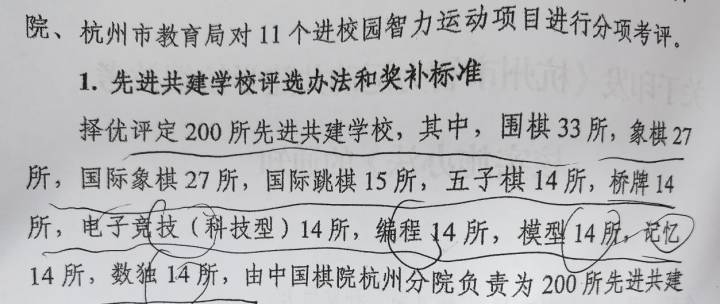 院、杭州市教育局对 11 个进校园智力运动项目进行分项考评。
1. 先进共建学校评选办法和奖补标准
择优评定 200 所先进共建学校，其中，围棋 33 所，象棋 27
所，国际象棋 27 所，国际跳棋 15 所，五子棋 14 所，桥牌 14
所，电子竞技（科技型）14 所，编程 14 所，模型 14 所，记忆
14 所，数独 14 所，由中国棋院杭州分院负责为 200 所先进共建